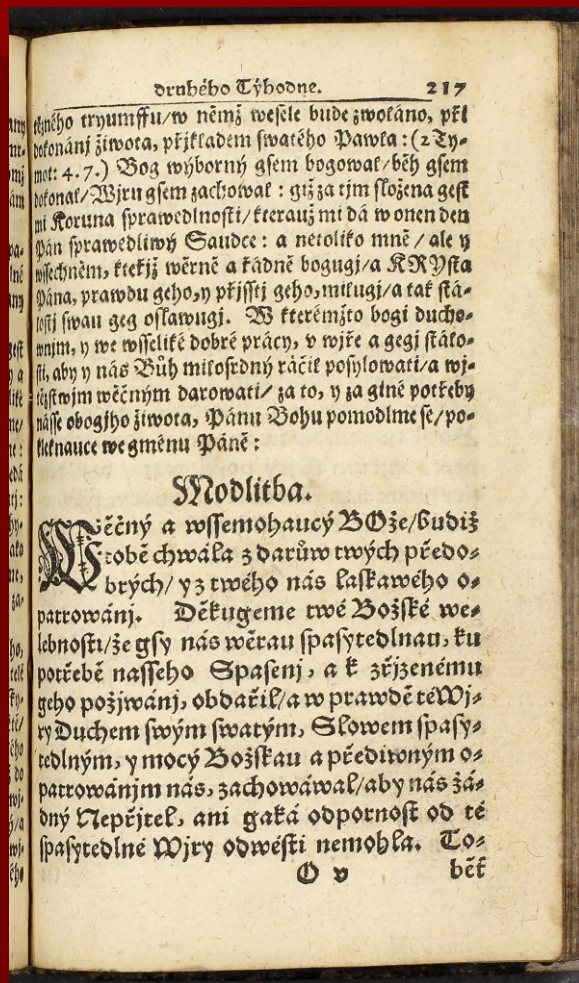 druhého Týhodne. 217
tězného tryumffu/w němž wesele bude zwoláno, při
dokonánj žiwota, přjkladem swatého Pawła: (2 Ty-
mot: 4. 7.) Bog wýborný gsem bogował/běh gsem
dokonał/Wjru gsem zachował: giž za tjm složena gest
mi Koruna sprawedlnosti/kterauž mi dá w onen den
Pán sprawedliwý Saudce: a netoliko mně/ale y
wssechněm, kteřjž wěrně a řádně bogugj/a KRYsta
Pána, prawdu geho, y přjsstj geho, milugj/a tak stá-
lostj swau geg oslawugj. W kterémžto bogi ducho-
wnjm, y we wsseliké dobré prácy, v wjře a gegj stálo-
sti, aby y nás Bůh milosrdný ráčil posylowati/a wj-
tězstwjm wěčným darowati/ za to, y za giné potřeby
násse obogjho žiwota, Pánu Bohu pomodlme sě/po-
kleknauce we gménu Páně:
Modlitba.
Wěčný a wssemohaucý BOže/budiž
tobě chwála z darůw twých předo-
brých/ y z twého nás laskawého o-
patrowánj. Děkugeme twé Božské we-
lebnosti/že gsy nás wěrau spasytedlnau, ku
potřebě nassеho Spasenj, a k zřjzenému
geho požjwánj, obdařil/a w prawdě té Wj-
ry Duchem swým swatým, Slowem spasy-
tedlným, y mocý Božskau a předіwným o-
patrowánjm nás, zachowáwal/aby nás žá-
dný Nepřjtel, ani gaká odpornost od té
spasytedlné Wjry odwésti nemohla. To-
O v běť